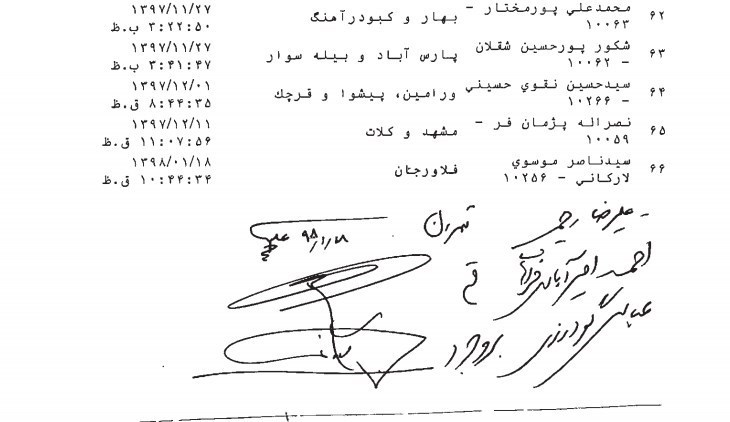 ۶۲ محمدعلي پورمختار - ۱۰۰۶۳ بهار و کبودرآهنگ ۱۳۹۷/۱۱/۲۷ ۳:۲۲:۵۰ ب.ظ
۶۳ شکور پورحسین شقلان - ۱۰۰۶۲ پارس آباد و بیله سوار ۱۳۹۷/۱۱/۲۷ ۳:۴۱:۴۷ ب.ظ
۶۴ سیدحسین نقوي حسیني - ۱۰۲۶۶ ورامین، پیشوا و قرچك ۱۳۹۷/۱۲/۰۱ ۸:۴۴:۳۵ ق.ظ
۶۵ نصراله پژمان فر - ۱۰۰۵۹ مشهد و کلات ۱۳۹۷/۱۲/۱۱ ۱۱:۰۷:۵۶ ق.ظ
۶۶ سیدناصر موسوي لارکاني - ۱۰۲۵۶ فلاورجان ۱۳۹۸/۰۱/۱۸ ۱۰:۴۴:۳۴ ق.ظ
علیرضا رحیمی تهران ۹۸/۱/۱۸
احمد امیرآبادی فراهانی قم
عباس گودرزی بروجرد